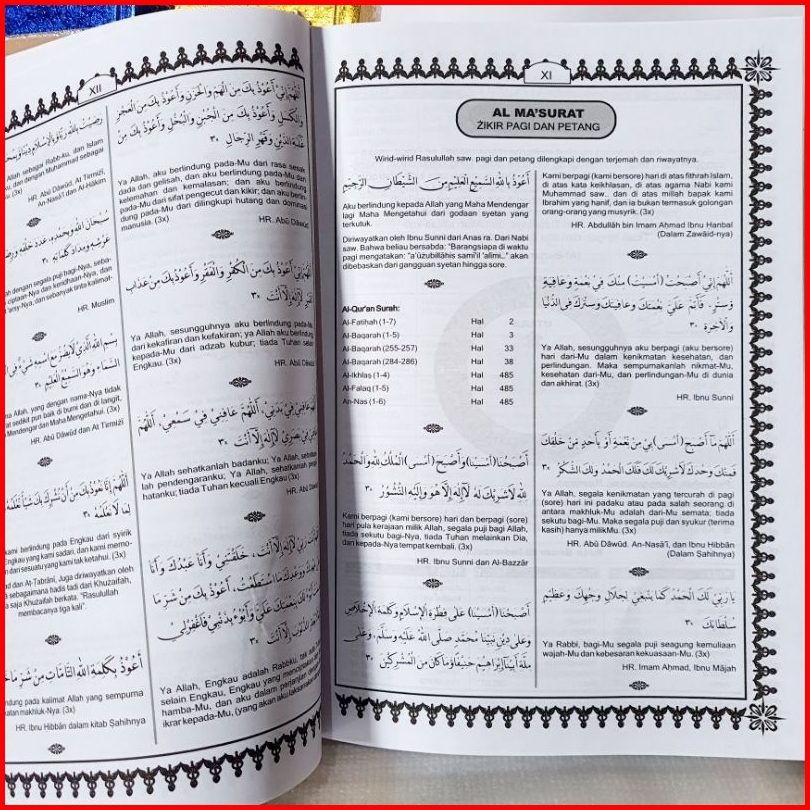 XI
AL MA'SURAT
ŻIKIR PAGI DAN PETANG
Wirid-wirid Rasulullah saw. pagi dan petang dilengkapi dengan terjemah dan riwayatnya.
أَعُوْذُ بِاللهِ السَّمِيْعِ الْعَلِيْمِ مِنَ الشَّيْطَانِ الرَّجِيْمِ
Aku berlindung kepada Allah yang Maha Mendengar
lagi Maha Mengetahui dari godaan syetan yang
terkutuk.
Diriwayatkan oleh Ibnu Sunni dari Anas ra. Dari Nabi
saw. Bahwa beliau bersabda: "Barangsiapa di waktu
pagi mengatakan: "a'ūżubillāhis samī'il 'alimi.." akan
dibebaskan dari gangguan syetan hingga sore.
Al-Qur'an Surah:
Al-Fatihah (1-7) Hal 2
Al-Baqarah (1-5) Hal 3
Al-Baqarah (255-257) Hal 33
Al-Baqarah (284-286) Hal 38
Al-Ikhlas (1-4) Hal 485
Al-Falaq (1-5) Hal 485
An-Nas (1-6) Hal 485
أَصْبَحْنَا (أَمْسَيْنَا) وَأَصْبَحَ (أَمْسَى) الْمُلْكُ لِلّٰهِ وَالْحَمْدُ
لِلّٰهِ لَاشَرِيْكَ لَهُ لَآإِلٰهَ إِلَّا هُوَ وَإِلَيْهِ النُّشُوْرُ ×٣
Kami berpagi (kami bersore) hari dan berpagi (sore)
hari pula kerajaan milik Allah, segala puji bagi Allah,
tiada sekutu bagi-Nya, tiada Tuhan melainkan Dia,
dan kepada-Nya tempat kembali. (3x)
HR. Ibnu Sunni dan Al-Bazzār
أَصْبَحْنَا (أَمْسَيْنَا) عَلَى فِطْرَةِ الْإِسْلَامِ وَكَلِمَةِ الْإِخْلَاصِ
وَعَلَى دِيْنِ نَبِيِّنَا مُحَمَّدٍ صَلَّى اللهُ عَلَيْهِ وَسَلَّمَ، وَعَلَى
مِلَّةِ أَبِيْنَا إِبْرَاهِيْمَ حَنِيْفًا وَمَاكَانَ مِنَ الْمُشْرِكِيْنَ ×٣
Kami berpagi (kami bersore) hari di atas fithrah Islam,
di atas kata keikhlasan, di atas agama Nabi kami
Muhammad saw.. dan di atas millah bapak kami
Ibrahim yang hanif, dan ia bukan termasuk golongan
orang-orang yang musyrik. (3x)
HR. Abdullāh bin Imam Aḥmad Ibnu Hanbal
(Dalam Zawāid-nya)
اَللّٰهُمَّ إِنِّيْ أَصْبَحْتُ (أَمْسَيْتُ) مِنْكَ فِيْ نِعْمَةٍ وَعَافِيَةٍ
وَسِتْرٍ، فَأَتِمَّ عَلَيَّ نِعْمَتَكَ وَعَافِيَتَكَ وَسِتْرَكَ فِى الدُّنْيَا
وَالْآخِرَةِ ×٣
Ya Allah, sesungguhnya aku berpagi (aku bersore)
hari dari-Mu dalam kenikmatan kesehatan, dan
perlindungan. Maka sempurnakanlah nikmat-Mu,
kesehatan dari-Mu, dan perlindungan-Mu di dunia
dan akhirat. (3x)
HR. Ibnu Sunni
اَللّٰهُمَّ مَآ أَصْبَحَ (أَمْسَى) بِيْ مِنْ نِعْمَةٍ أَوْ بِأَحَدٍ مِنْ خَلْقِكَ
فَمِنْكَ وَحْدَكَ لَاشَرِيْكَ لَكَ فَلَكَ الْحَمْدُ وَلَكَ الشُّكْرُ ×٣
Ya Allah, segala kenikmatan yang tercurah di pagi
(sore) hari ini padaku atau pada salah seorang di
antara makhluk-Mu adalah dari-Mu semata; tiada
sekutu bagi-Mu. Maka segala puji dan syukur (terima
kasih) hanya milik-Mu. (3x)
HR. Abū Dāwūd. An-Nasā'ī, dan Ibnu Hibbān
(Dalam Ṣaḥihnya)
يَارَبِّيْ لَكَ الْحَمْدُ كَمَا يَنْبَغِيْ لِجَلَالِ وَجْهِكَ وَعَظِيْمِ
سُلْطَانِكَ ×٣
Ya Rabbi, bagi-Mu segala puji seagung kemuliaan
wajah-Mu dan kebesaran kekuasaan-Mu. (3x)
HR. Imam Ahmad, Ibnu Mājah
XII
رَضِيْتُ بِاللهِ رَبًّا وَبِالْإِسْلَامِ دِيْنًا
Allah sebagai Rabb-ku, dan Islam
dan dengan Muhammad sebagai
(3x)
HR. Abū Dāwud, At Tirmizi,
An-Nasa'i dan Al-Hākim
سُبْحَانَ اللهِ وَبِحَمْدِهِ، عَدَدَ خَلْقِهِ
عَرْشِهِ وَمِدَادَ كَلِمَاتِهِ ×٣
dengan segala puji bagi-Nya, seba-
ciptaan-Nya dan keridhaan-Nya, dan
'arsy-Nya, dan sebanyak tinta kalimat-
HR. Muslim
بِسْمِ اللهِ الَّذِيْ لَايَضُرُّ مَعَ اسْمِهِ شَيْءٌ فِى
السَّمَاءِ وَهُوَ السَّمِيْعُ الْعَلِيْمُ ×٣
Allah, yang dengan nama-Nya tidak
sedikit pun baik di bumi dan di langit,
Mendengar dan Maha Mengetahui. (3x)
HR. Abū Dāwūd dan At Tirmizī
اَللّٰهُمَّ إِنَّا نَعُوْذُ بِكَ مِنْ أَنْ نُشْرِكَ بِكَ شَيْئًا نَعْلَمُهُ
لِمَا لَا نَعْلَمُهُ ×٣
kami berlindung pada Engkau dari syirik
Engkau yang kami sadari, dan kami memo-
dari sesuatu yang kami tak ketahui. (3x)
dan At-Ṭabrāni, Juga diriwayatkan oleh
sebagaimana hadis tadi dari Khuzaifah,
saja Khuzaifah berkata. "Rasulullah
membacanya tiga kali".
أَعُوْذُ بِكَلِمَةِ اللهِ التَّامَّاتِ مِنْ شَرِّ مَا
pada kalimat Allah yang sempurna
makhluk-Nya. (3x)
HR. Ibnu Hibbān dalam kitab Ṣahihnya
اَللّٰهُمَّ إِنِّيْ أَعُوْذُ بِكَ مِنَ الْهَمِّ وَالْحَزَنِ وَأَعُوْذُ بِكَ مِنَ الْعَجْزِ
وَالْكَسَلِ وَأَعُوْذُ بِكَ مِنَ الْجُبْنِ وَالْبُخْلِ وَأَعُوْذُ بِكَ مِنْ
غَلَبَةِ الدَّيْنِ وَقَهْرِ الرِّجَالِ ×٣
Ya Allah, aku berlindung pada-Mu dari rasa sesak
dada dan gelisah, dan aku berlindung pada-Mu dari
kelemahan dan kemalasan; dan aku berlindung
pada-Mu dari sifat pengecut dan kikir; dan aku berlin-
dung pada-Mu dari dilingkupi hutang dan dominasi
manusia. (3x)
HR. Abū Dāwūd
اَللّٰهُمَّ إِنِّيْ أَعُوْذُ بِكَ مِنَ الْكُفْرِ وَالْفَقْرِ وَأَعُوْذُ بِكَ مِنْ عَذَابِ
الْقَبْرِ لَآإِلٰهَ إِلَّا أَنْتَ ×٣
Ya Allah, sesungguhnya aku berlindung pada-Mu
dari kekafiran dan kefakiran; ya Allah aku berlindung
kepada-Mu dari adzab kubur; tiada Tuhan selain
Engkau. (3x)
HR. Abū Dāwūd
اَللّٰهُمَّ عَافِنِيْ فِيْ بَدَنِيْ، اَللّٰهُمَّ عَافِنِيْ فِيْ سَمْعِيْ، اَللّٰهُمَّ
عَافِنِيْ فِيْ بَصَرِيْ لَآإِلٰهَ إِلَّا أَنْتَ ×٣
Ya Allah sehatkanlah badanku; Ya Allah, sehatkan-
lah pendengaranku; Ya Allah, sehatkanlah
hatanku; tiada Tuhan kecuali Engkau (3x)
HR. Abū
خَلَقْتَنِيْ وَأَنَا عَبْدُكَ وَأَنَا
وَوَعْدِكَ مَا اسْتَطَعْتُ، أَعُوْذُ بِكَ مِنْ شَرِّ مَا
بِنِعْمَتِكَ عَلَيَّ وَأَبُوْءُ بِذَنْبِيْ فَاغْفِرْلِيْ
الذُّنُوْبَ إِلَّا أَنْتَ ×٣
Ya Allah, Engkau adalah Rabbku, tak ada
selain Engkau, Engkau yang menciptakan
hamba-Mu, dan aku dalam perjanjian
ikrar kepada-Mu, (yang akan aku laksanakan